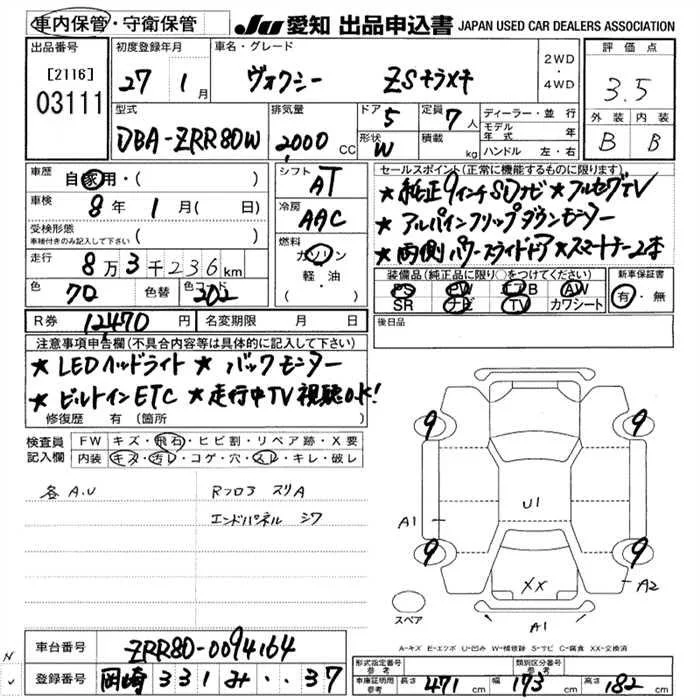 車内保管・守衛保管
JU 愛知 出品申込書 JAPAN USED CAR DEALERS ASSOCIATION
出品番号
[2116]
03111
初度登録年月
27 1月
車名・グレード
ヴォクシー ZSキラメキ
2WD
・
4WD
評価点
3.5
外装 内装
B B
型式
DBA-ZRR80W
排気量
2,000 CC
ドア 5
形状 W
定員 7人
積載 kg
ディーラー・並行
モデル年式 年
ハンドル 左・右
車歴
自家用・( )
車検
8年 1月(日)
受検形態
車検付きのみ記入して下さい ( )
走行
8万3千236km
色
70
色替
色コード
202
シフト
AT
冷房
AAC
燃料
ガソリン
軽・油
R券 12,470円
名変期限 月 日
セールスポイント(正常に機能するものに限ります)
★純正9インチSDナビ★フルセグTV
★アルパインフリップダウンモニター
★両側パワースライドドア★スマートキー2本
装備品(純正品に限り○をつけてください)
PS PW エアB AW
SR ナビ TV カワシート
新車保証書
有・無
後日品
注意事項申告欄(不具合内容等は具体的に記入して下さい)
★LEDヘッドライト★バックモニター
★ビルトインETC★走行中TV視聴OK!
修復歴 有(箇所 )
検査員
記入欄
FW キズ・飛石・ヒビ割・リペア跡・X要
内装 キズ・汚レ・コゲ・穴・スレ・キレ・破レ
各A.U
Rフロア スリA
エンドパネル シワ
9 9
U1
A1
9 9
XX
A2
A1
スペア
A-キズ E-エクボ U-凹み W-補修跡 S-サビ C-腐食 XX-交換済
N
車台番号 ZRR80-0094164
レ
登録番号 岡崎 331 み ・・37
形式指定番号
参考
類別区分番号
参考
車庫証明用
参考
長さ 471cm 幅 173cm 高さ 182cm